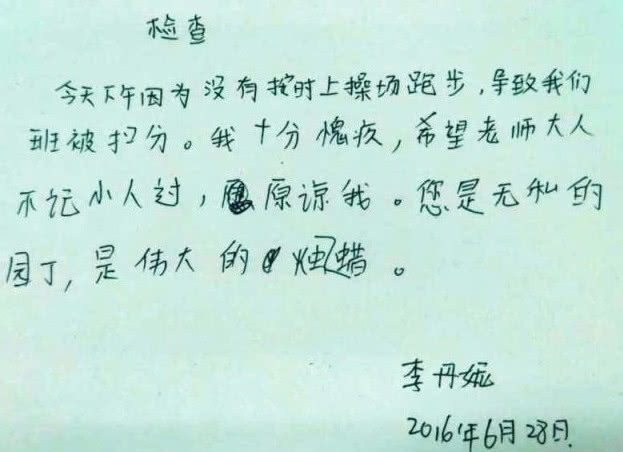 检查
今天下午因为没有按时上操场跑步，导致我们
班被扣分。我十分愧疚，希望老师大人
不记小人过，原谅我。您是无私的
园丁，是伟大的蜡烛。
李丹妮
2016年6月28日.